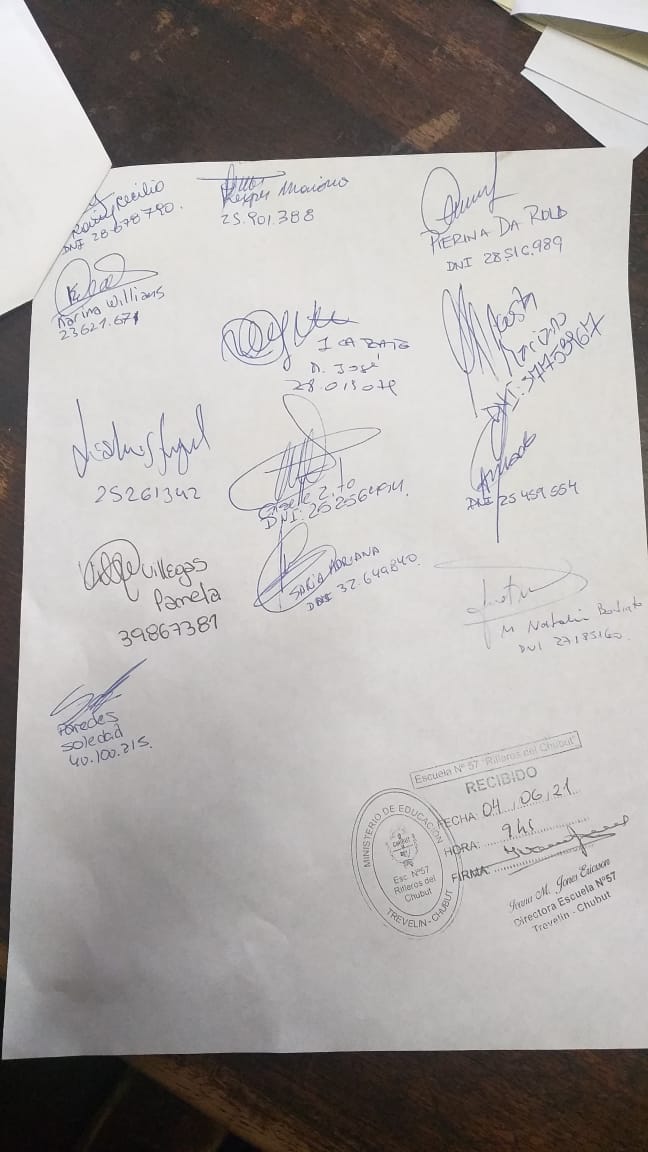 Cecilia
DNI 28.678.790.
25.901.388
PIERINA DA ROLD
DNI 28.516.989
Karina Willians
23621.671
M. José
DNI: 37759967
25261342
Giselle
DNI: 25256454.
DNI 25 459 554
Villegas
Pamela
39867381
SORIA ADRIANA
DNI 32.649840.
M Natalia
DNI 27185160.
Paredes
Soledad
40.100.215.
Escuela Nº 57 "Rifleros del Chubut"
RECIBIDO
FECHA 04 / 06 / 21
HORA: 9hs
FIRMA:
MINISTERIO DE EDUCACIÓN
CHUBUT
Esc. Nº57
Rifleros del
Chubut
TREVELIN - CHUBUT
Ivana M. Jones Ericsson
Directora Escuela Nº57
Trevelin - Chubut